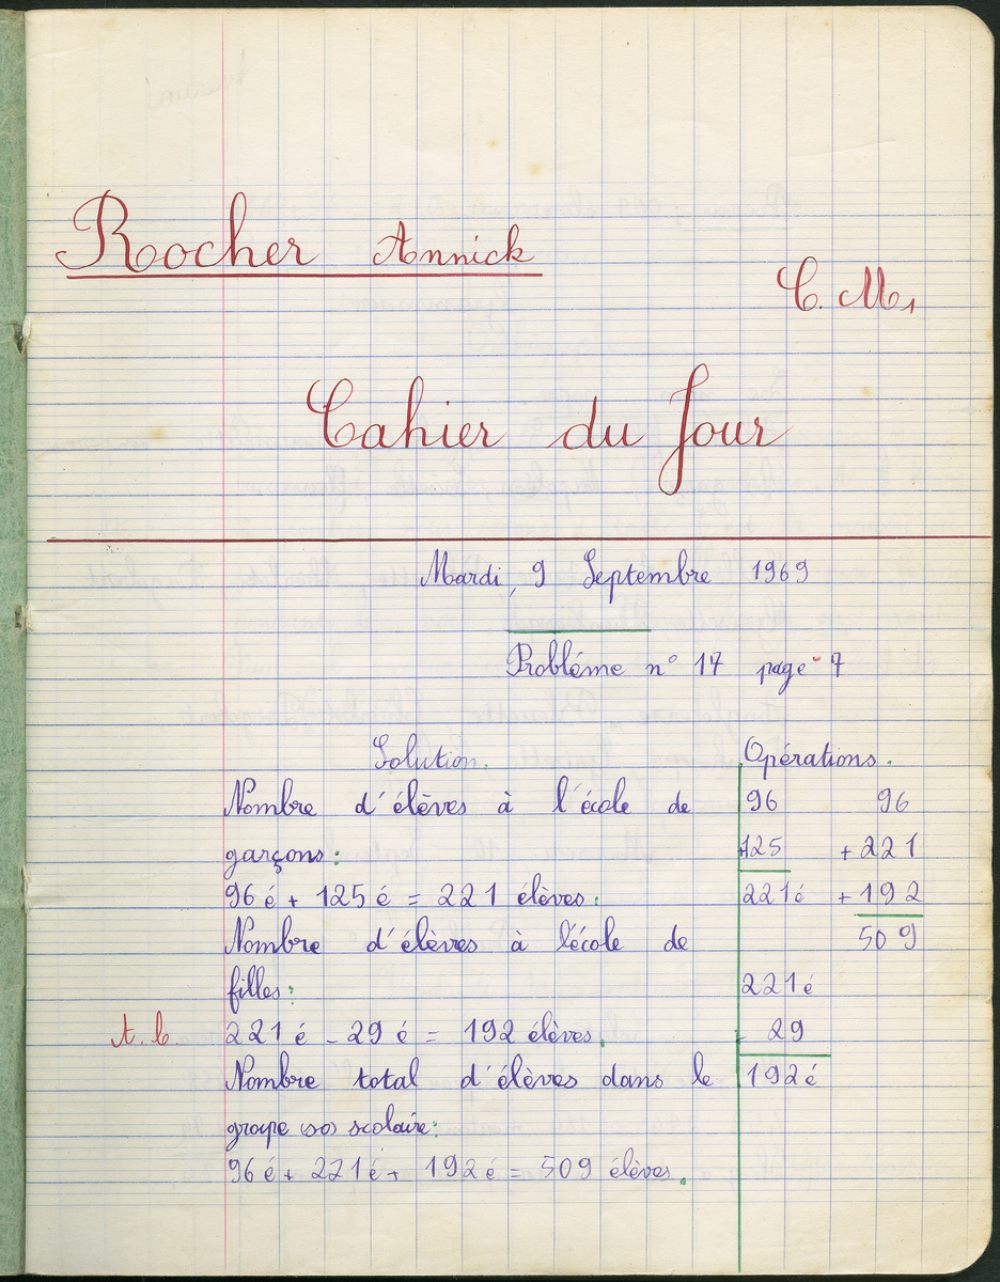 Rocher Annick
C. M1
Cahier du Jour
Mardi, 9 Septembre 1969
Probléme n° 17 page 7
Solution.
Nombre d'élèves à l'école de
garçons :
96 é + 125 é = 221 élèves.
Nombre d'élèves à l'école de
filles :
t. b. 221 é - 29 é = 192 élèves.
Nombre total d'élèves dans le
groupe (so) scolaire :
96 é + 221 é + 192 é = 509 élèves.
Opérations.
96 96
+125 + 221
221 é + 192
509
221 é
- 29
192 é